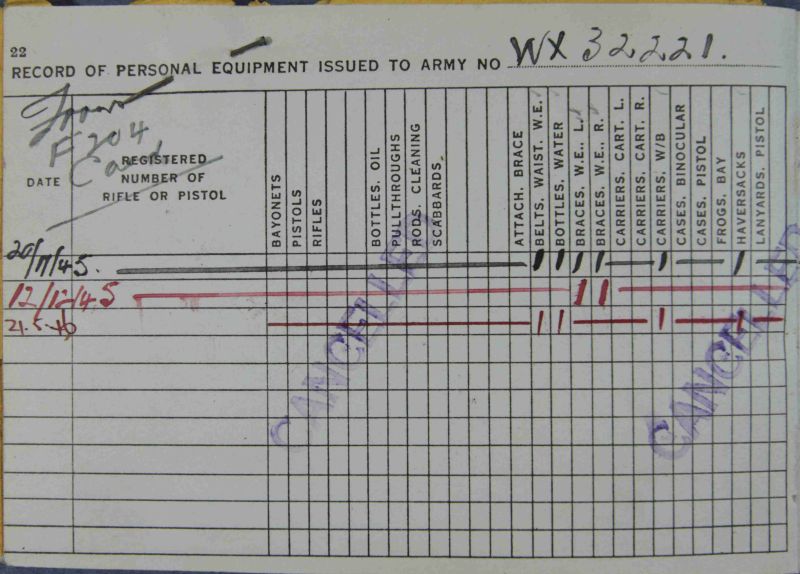 22
RECORD OF PERSONAL EQUIPMENT ISSUED TO ARMY NO WX 32221.
From
F 204
Card
DATE
REGISTERED
NUMBER OF
RIFLE OR PISTOL
BAYONETS
PISTOLS
RIFLES
BOTTLES, OIL
PULLTHROUGHS
RODS, CLEANING
SCABBARDS
ATTACH. BRACE
BELTS, WAIST. W.E.
BOTTLES, WATER
BRACES, W.E., L.
BRACES, W.E., R.
CARRIERS, CART. L.
CARRIERS, CART. R.
CARRIERS, W/B
CASES, BINOCULAR
CASES, PISTOL
FROGS, BAY
HAVERSACKS
LANYARDS, PISTOL
1 1 1 1 1 1
12/12/45 1 1
21.5.46 1 1 1 1
CANCELLED
CANCELLED